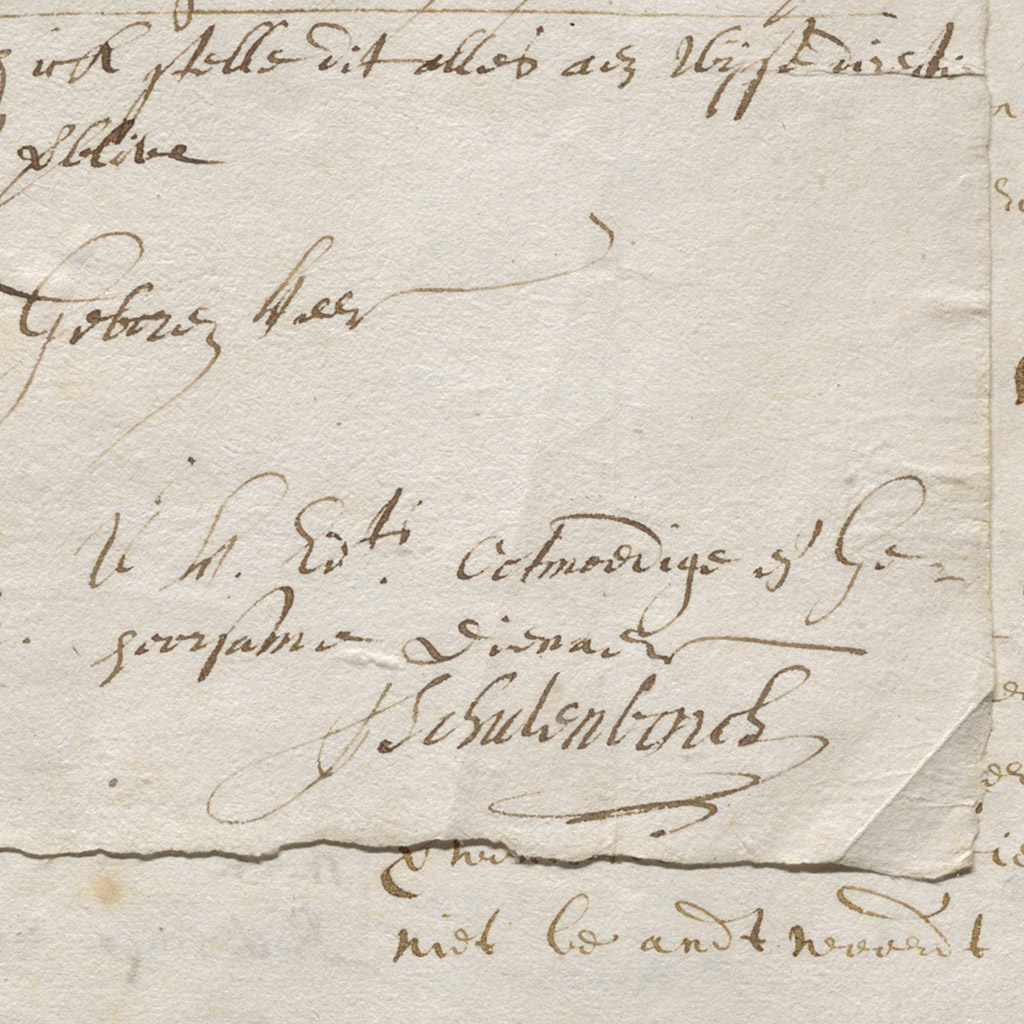 ick stelle dit alles aen wijse directie
& blive
Geboren Heer
U H. Ed.ts Ootmoedige en Ge-
hoorsame Dienaer
JSchulenborch
niet be andt woordt